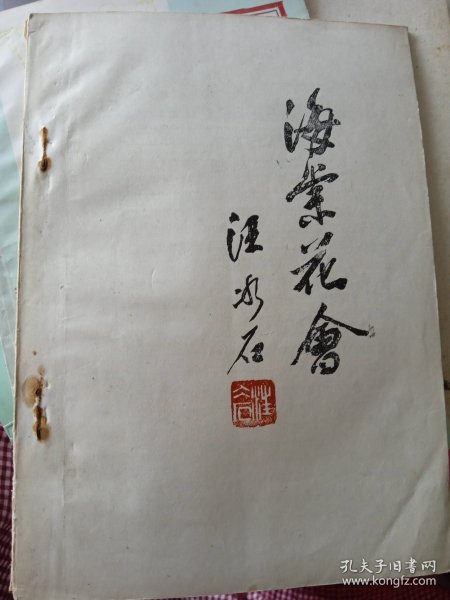 海棠花會
汪冰石
孔夫子旧书网
www.kongfz.com